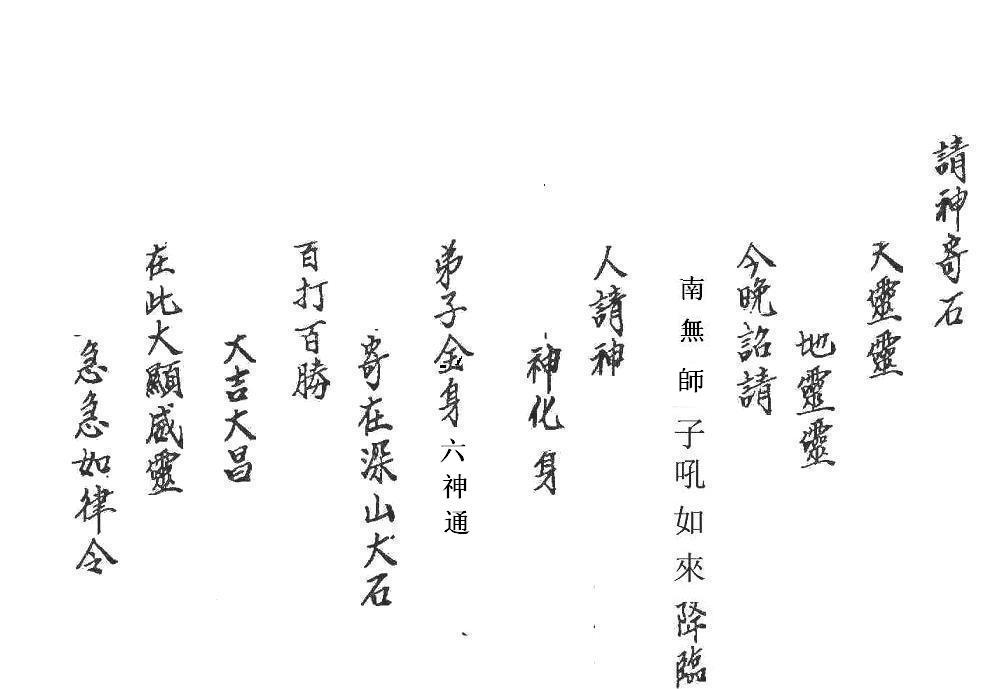 請神寄石
天靈靈
地靈靈
今晚詔請
南無師子吼如來降臨
人請神
神化身
弟子金身六神通
寄在深山大石
百打百勝
大吉大昌
在此大顯威靈
急急如律令